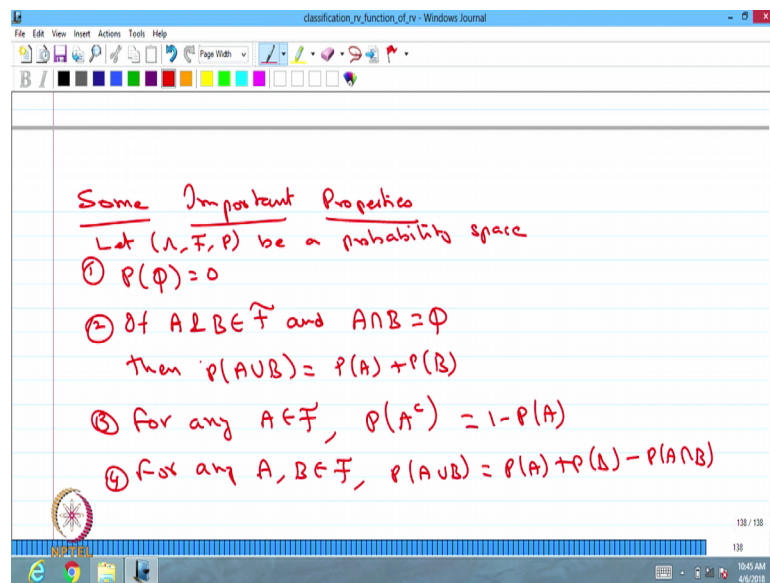 classification_rv_function_of_rv - Windows Journal
File Edit View Insert Actions Tools Help
Page Width
B I
Some Important Properties
Let (Ω, F, P) be a probability space
① P(Φ) = 0
② If A & B ∈ F and A∩B = Φ
then P(A∪B) = P(A) + P(B)
③ For any A ∈ F, P(Aᶜ) = 1 - P(A)
④ For any A, B ∈ F, P(A∪B) = P(A) + P(B) - P(A∩B)
138 / 138
NPTEL
138
10:45 AM
4/6/2018